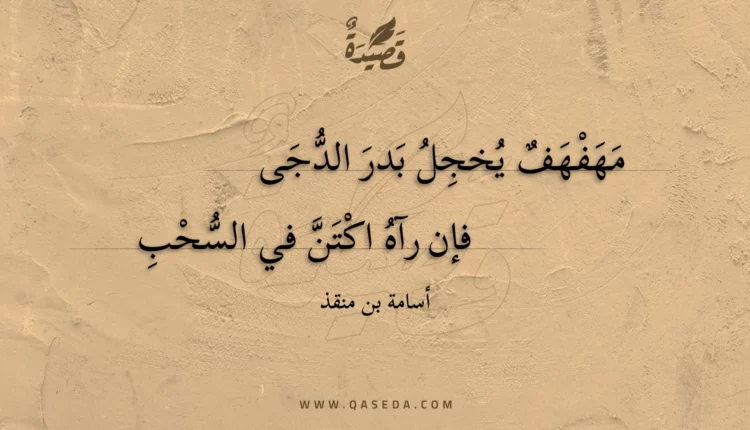 قَصِيدَةٌ
مَهَفْهَفٌ يُخجِلُ بَدرَ الدُّجَى
فإن رآهُ اكْتَنَّ في السُّحْبِ
أسامة بن منقذ
WWW.QASEDA.COM